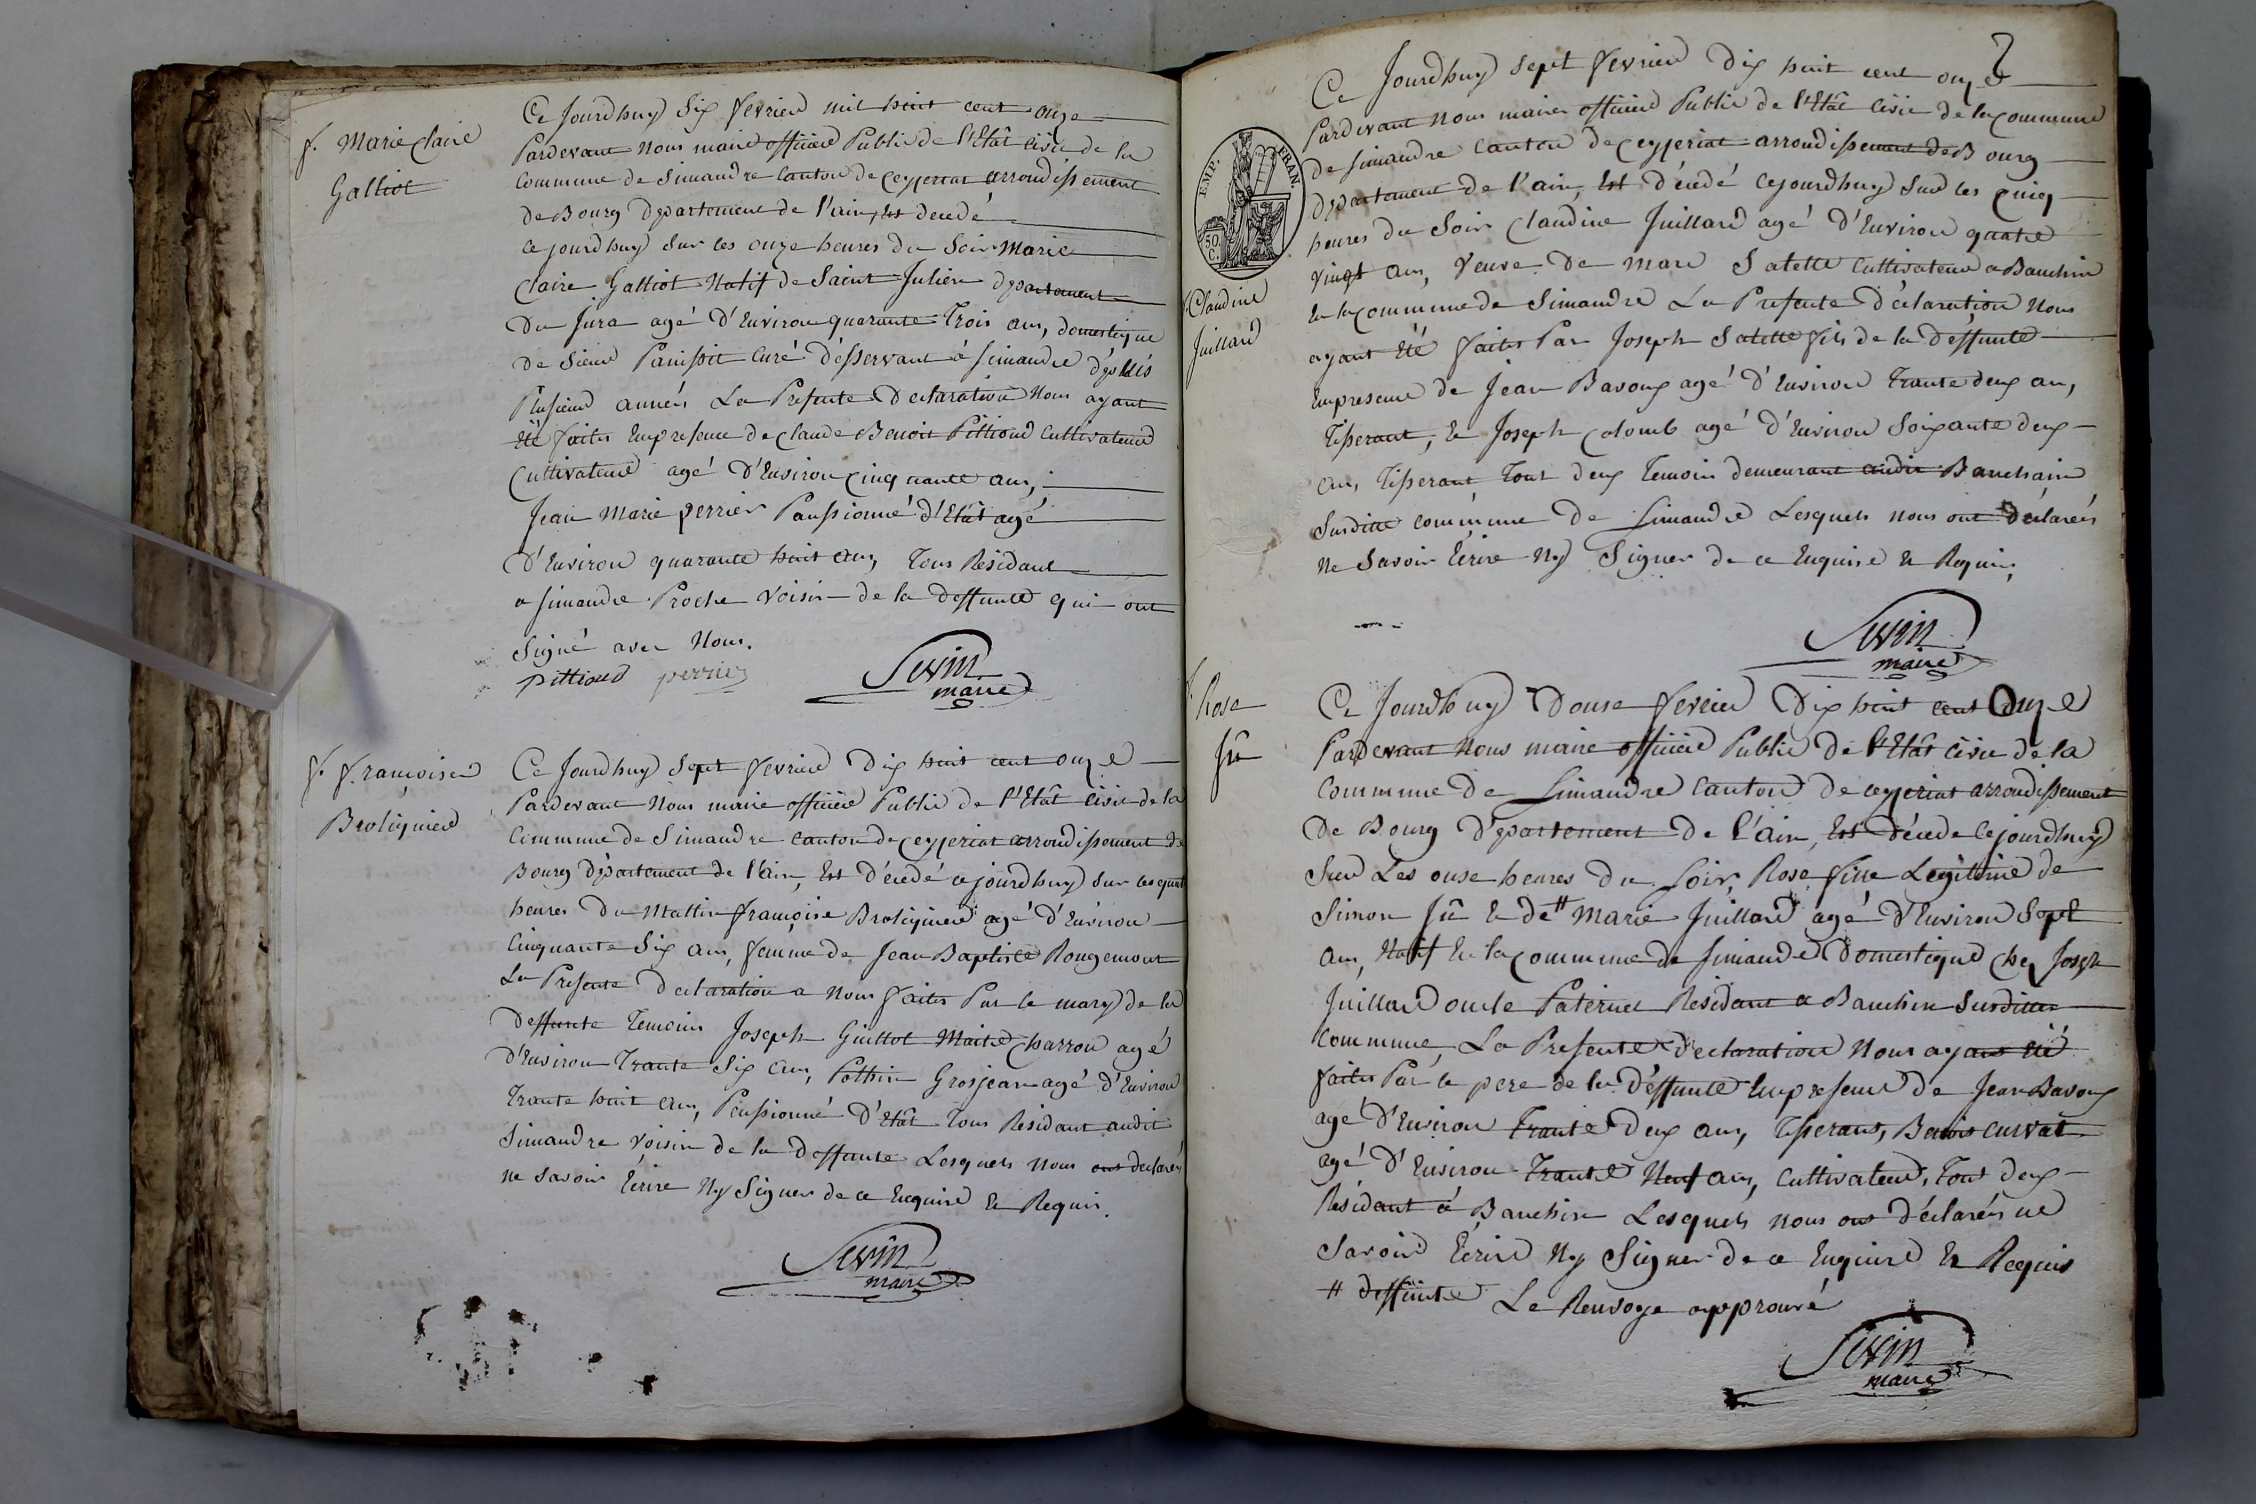 f. Marie Claire
Galliot
Ce Jourdhuy Six fevrier mil huit cent onze
Pardevant Nous maire officier Public de l'Etât Civil de la
Commune de Simandre Canton de Ceyzeriat arrondissement
de Bourg Département de l'ain, Est decedé
ce jourdhuy Sur les onze heures du Soir Marie
Claire Galliot Natif de Saint Julien département
du Jura agé d'Environ quarante Trois ans, domestique
de Sieur curé désservant à Simandre dépuis
Plusieur années La Presente Declaration Nous ayant
Eté faites Enpresence de Claude Benoit Pittiond Cultivateur
Cultivateur agé d'Environ Cinquante ans,
Jean Marie perrier Panssionné d'Etât agé
d'Environ quarante huit ans, Tous Résidant
a Simandre Proche Voisin de la deffunte qui ont
Signé avec Nous.
pittiond perrier Sevin
maire
f. françoise
Brolignier
Ce Jourdhuy Sept fevrier Dix huit cent onze
Pardevant Nous maire officier Public de l'Etât Civil de la
Commune de Simandre canton de Ceyzeriat arrondissement de
Bourg département de l'ain, Est décedé ce jourdhuy sur les quat
heures du Mattin françoise Brolignier agé d'Environ
Cinquante Six ans, femme de Jean Baptiste Rougemont
La Presente declaration a Nous faites Par le mary de la
deffunte Temoins Joseph Guillot Maitre Charron agé
d'Environ Trante Six ans, Pothin Grosjean agé d'Environ
Trante huit ans, Penssionné d'Etât Tous Résidant audit
Simandre voisin de la deffunte Lesquels nous ont declarés
ne savoir Ecrire Ny Signer de ce Enquire Et Requis.
Sevin
maire
2
EMP. FRAN.
50
C.
f. Claudine
Juillard
Ce Jourdhuy Sept fevrier Dix huit cent onze
Pardevant Nous maire officier Public de l'Etât Civil de la commune
de Simandre Canton de Ceyzeriat arrondissement de Bourg
département de l'ain, Est décedé Cejourdhuy Sur les Cinq
heures du Soir Claudine Juillard agé d'Environ quatre
Vingt ans, Veuve de Marc Salette Cultivateur a Banchin
En la Commune de Simandre La Presente déclaration Nous
ayant Eté faites Par Joseph Salette fils de la deffunte
Enpresence de Jean Bavoux agé d'Environ Trante deux ans,
Tisserant, Et Joseph Colomb agé d'Environ Soixante deux
ans, Tisserant Tout deux Temoin demeurant audit Banchain
Susditte commune de Simandre Lesquels nous ont déclarés
Ne Savoir Ecrire Ny Signer de ce Enquire Et Requis,
Sevin
maire
f. Rose
Jû
Ce Jourdhuy Douse fevrier Dix huit cent Onze
Pardevant Nous maire officier Public de l'Etât Civil de la
Commune de Simandre Canton de ceyzeriat arrondissement
De Bourg Département De l'ain, Est décede Cejourdhuy
Sur Les onse heures du Soir, Rose fille Legitime de
Simon Jû Et de # Marie Juillard agé d'Environ Sept
ans, Natif En la Commune de Simandre Domestique chez Joseph
Juillard oncle Paternel Résidant a Banchin Susditte
Commune, La Presente Declaration Nous ayant Eté
faites Par le pere de la déffunte Enpresence de Jean Bavoux
agé d'Environ Trante Deux ans, Tisserant, Benoit Curvat
agé d'Environ Trante Neuf ans, Cultivateur, Tout deux
Résidant à Banchin Lesquels nous ont déclarés ne
savoir Ecrire Ny Signer de ce Enquire Et Requis
# deffunte Le Renvoye approuvé
Sevin
maire